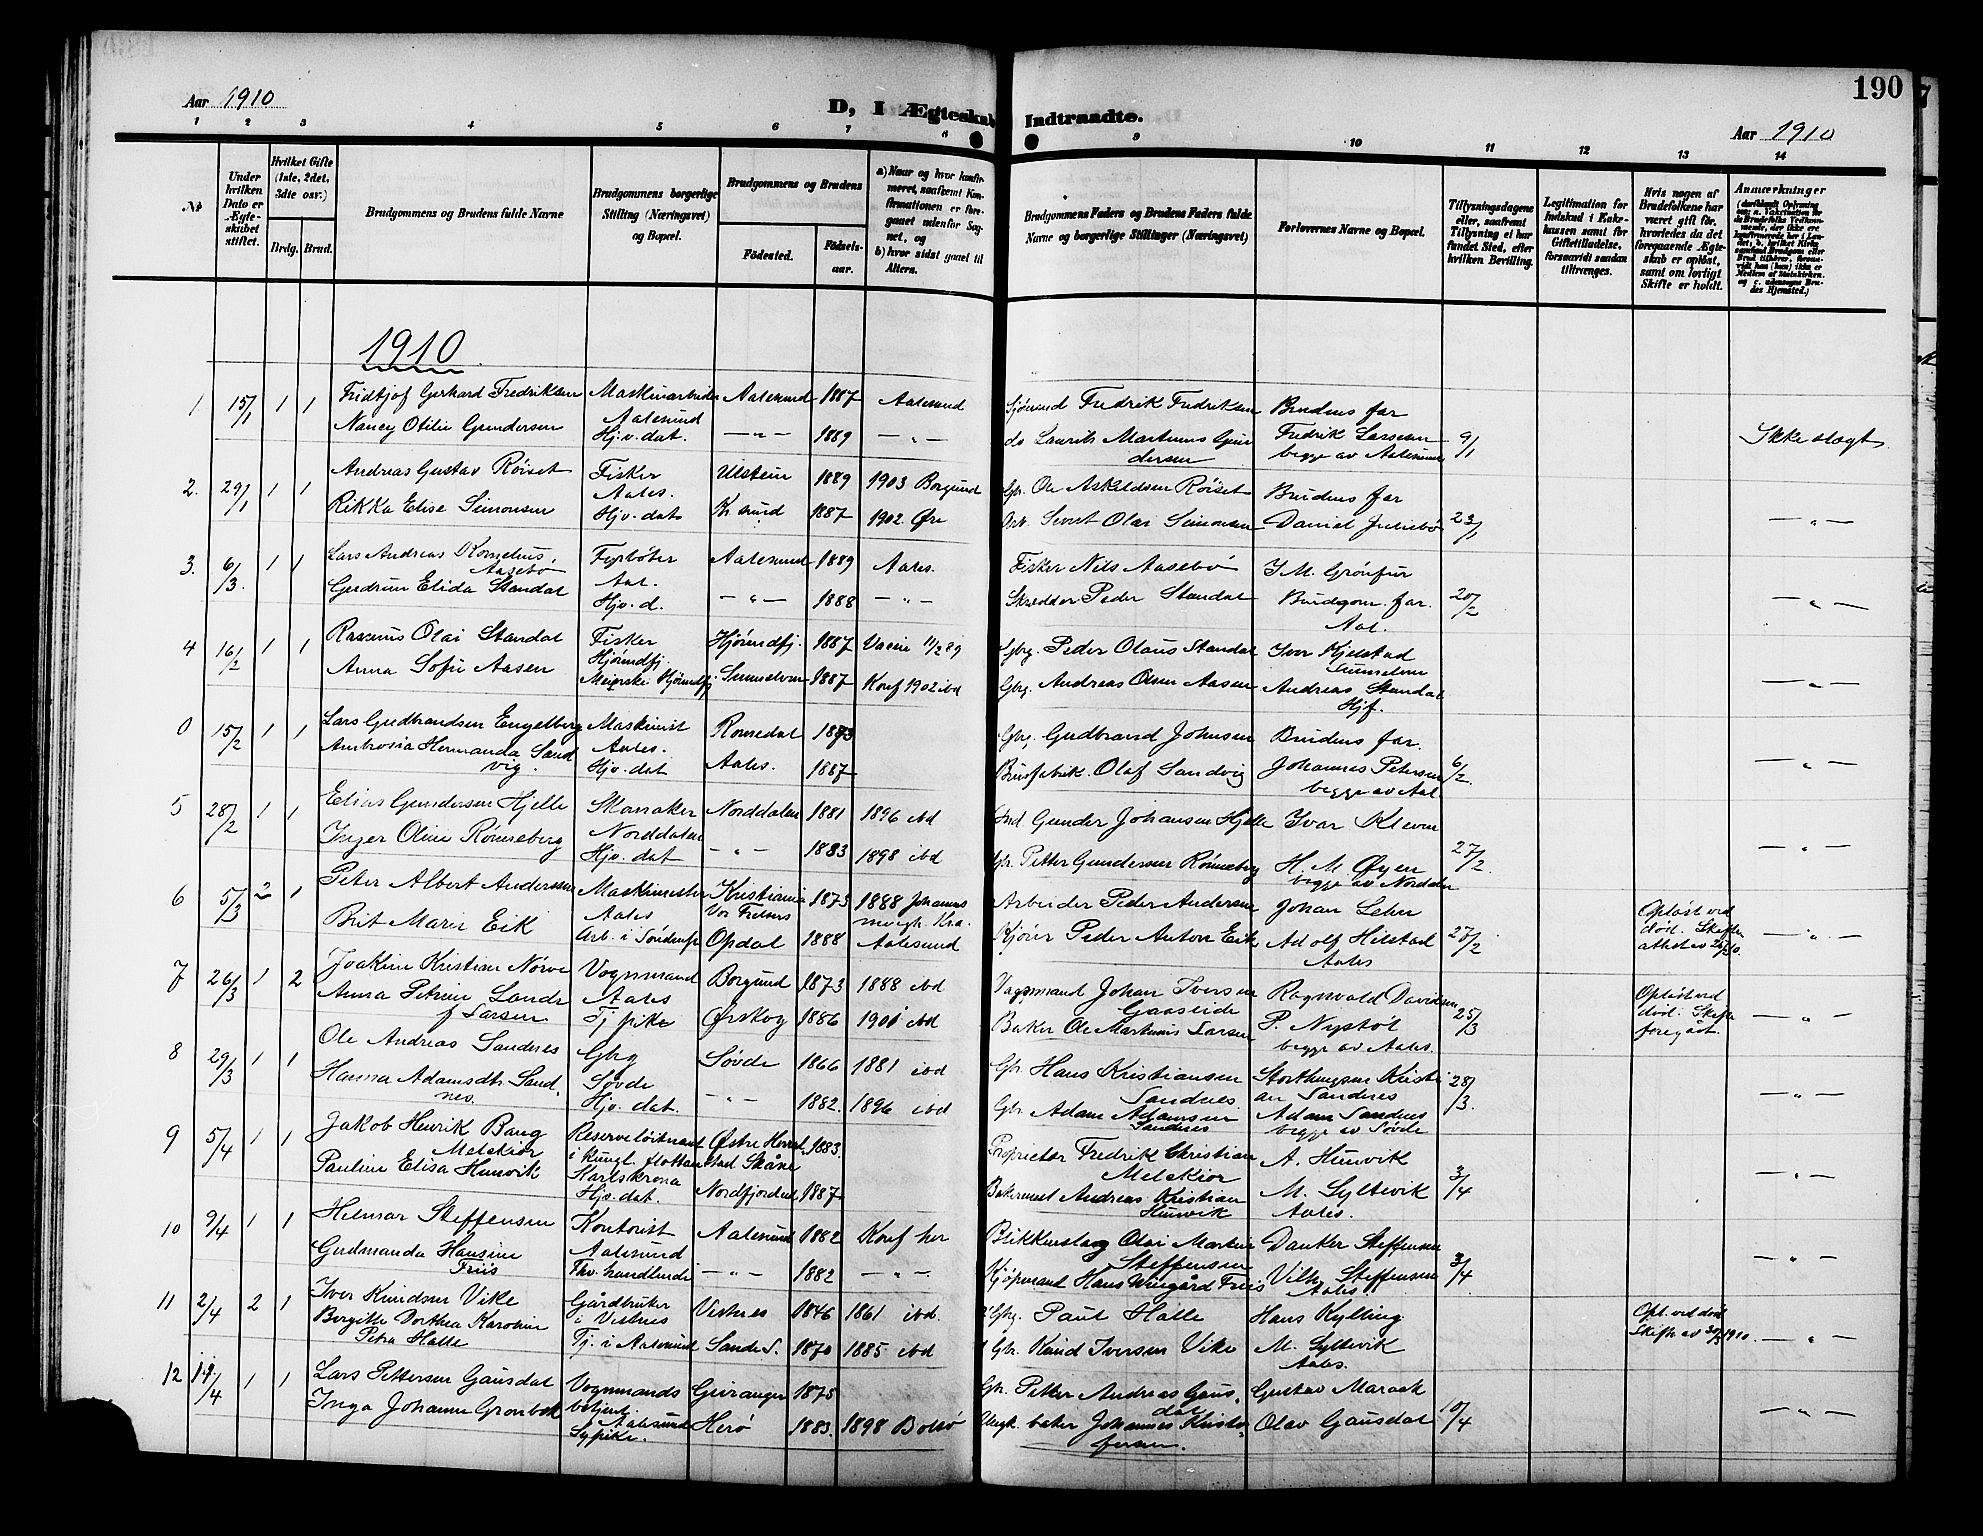 190
Aar 1910
D, I Ægteskab Indtraadte.
Aar 1910
1 2 3 4 5 6 7 8 9 10 11 12 13 14
№
Under hvilken Dato er Ægteskabet stiftet.
Hvilket Gifte (1ste, 2det, 3dte osv.)
Brdg. Brud.
Brudgommens og Brudens fulde Navne
Brudgommens borgerlige Stilling (Næringsvei) og Bopæl.
Brudgommens og Brudens
Fødested.
Fødselsaar.
a) Naar og hvor konfirmeret, saafremt Konfirmationen er foregaaet udenfor Sognet, og
b) hvor sidst gaaet til Alters.
Brudgommens Faders og Brudens Faders fulde Navne og borgerlige Stillinger (Næringsvei)
Forlovernes Navne og Bopæl.
Tillysningsdagene eller, saafremt Tillysning ei har fundet Sted, efter hvilken Bevilling.
Legitimation for Indskud i Enkekassen samt for Giftetilladelse, forsaavidt saadan tiltrænges.
Hvis nogen af Brudefolkene har været gift før, hvorledes da det foregaaende Ægteskab er opløst, samt om lovligt Skifte er holdt.
Anmærkninger
1910
1 15/1 1 1 Fridtjof Gerhard Fredriksen Maskinarbeider Aalesund 1887 Aalesund Sjømand Fredrik Fredriksen Brudens far
Nancy Otilie Gundersen Hj.v.dat. —„— 1889 —„— do Laurits Martinus Gundersen Fredrik Larsen begge av Aalesund 9/1 Ikke slægt
2. 29/1 1 1 Andreas Gustav Røiset Fisker Aales. Ulstein 1889 1903 Borgund Gbr. Ole Askildsen Røiset Brudens far
Rikka Elise Simonsen Hjv. dat Kr sund 1887 1902 Øre Arb. Sivert Olai Simonsen Daniel Juliebø 23/1 —„—
3. 6/3. 1 1 Lars Andreas Kornelius Aasebø Aal. Aalesund 1889 Aales. Fisker Nils Aasebø
Gudrun Elida Standal Hjv. d. —„— 1888 —„— Skrædder Peder Standal Brudgom. far. Aal. 20/2 —„—
4 16/2 1 1 Rasmus Olai Standal Fisker Hjørundfj. Hjørundfj. 1887 Vacin 11/2 89 Gbg. Peder Olaus Standal Iver Kjelstad Sunnelven
Anna Sofie Aasen Meierske Hjørundfj Sunnelven 1887 Konf 1902 ibd Gbg. Andreas Olsen Aasen Andreas Standal Hjf. —„—
0 15/2 1 1 Lars Gudbrandsen Engelberg Maskinist Aales. Romsdal 1883 Gbg. Gudbrand Johnsen Brudens far.
Ambrosia Hermanda Sandvig. Hjv. dat Aales. 1887 Brusfabrik. Olaf Sandvig Johannes Petersen begge av Aal. 6/2. —„—
5 28/2 1 1 Elias Gundersen Hjelle Skomaker Norddalen Norddalen 1881 1896 ibd Ind Gunder Johansen Hjelle Ivar Kleven
Inger Oline Rønneberg Hjv. dat —„— 1883 1898 ibd Gbr. Petter Gundersen Rønneberg H. M. Øyen begge av Norddalen 27/2. —„—
6 5/3 2 1 Peter Albert Andersen Maskinmester Aales Kristiania Vor Frelsers 1873 1888 Johannes menigh. Kra. Arbeider Peder Andersen Johan Lehn Opløst ved død. Skifteattest av
Brit Marie Eik Opdal 1888 Aalesund Kjører Peder Anton Eik Adolf Hilstad Aales 27/2 —„—
7 26/3 1 2 Joakim Kristian Nørve Vognmand Aales Borgund 1873 1888 ibd Vognmand Johan Iversen Gaaseide Ragnvald Davidsen Opløst ved død. Skifte foregåt.
Anna Petrine Lande f Larsen Tj pike Ørskog 1886 1901 ibd Baker Ole Martinus Larsen P. Nystøl begge av Aales. 25/3 —„—
8 29/3 1 1 Ole Andreas Sandnes Gbg Søvde Søvde 1866 1881 ibd Gbr Hans Kristiansen Sandnes Storthingsm Kristian Sandnes
Hanna Adamsdtr Sandnes. Hjv. dat. —„— 1882. 1896 ibd Gbr Adam Adamsen Sandnes Adam Sandnes begge av Søvde 28/3. —„—
9 5/4 1 1 Jakob Henrik Bang Melekior Reserveløitnant i kungl. flottan Karlskrona Østre Herrestad Skåne 1883. Proprietær Fredrik Christian Melekior A. Hunvik
Pauline Elisa Hunvik Hjv. dat. Nordfjordeid 1887 Bakermest Andreas Kristian Hunvik M. Syltevik Aales. 3/4 —„—
10 9/4 1 1 Hilmar Steffensen Kontorist Aalesund Aalesund 1882 Konf her Blikkenslag Olai Martin Steffensen Danker Steffensen
Gudmanda Hansine Friis Fhv. handlende —„— 1882 —„— Kjøpmand Hans Wingård Friis Vilh. Steffensen Aales. 3/4 „
11 2/4 2 1 Iver Knudsen Vike Gårdbruker i Vestnes Vestnes 1846 1861 ibd. Gbg. Paul Halle Hans Kylling Opl. ved død Skifte av 30/3 1910.
Bergitte Dorthea Karoline Petra Halle Tj. i Aalesund Sande S. 1870 1885 ibd Gbr. Knud Iversen Vike M. Syltevik Aales. —„—
12 14/4 1 1 Lars Pettersen Gausdal Vognmands betjent. Aalesund Geiranger 1875 Gbr. Petter Andreas Gausdal Gustav Maraak
Inga Johanne Gronbek Sypike. Herø 1883. 1898 Bolsø baker Johannes Kristofersen. Olav Gausdal 10/4 —„—